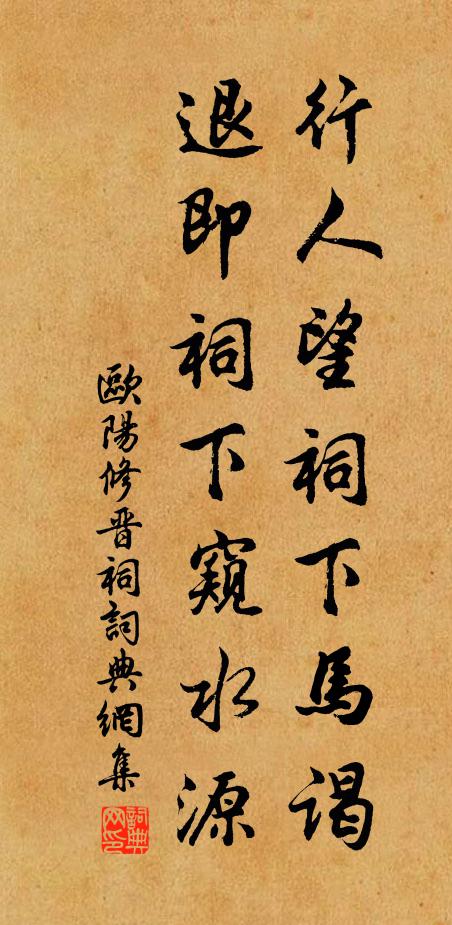 行人望祠下馬謁
退即祠下窺水源
歐陽修晉祠詞典網集
詞典网印